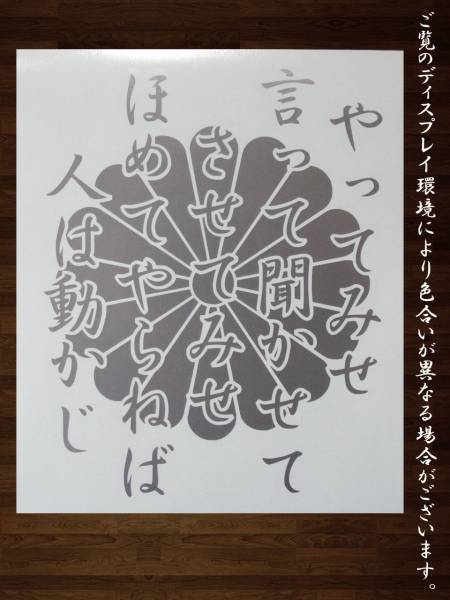 ご覧のディスプレイ環境により色合いが異なる場合がございます。
やってみせ
言って聞かせて
させてみせ
ほめてやらねば
人は動かじ